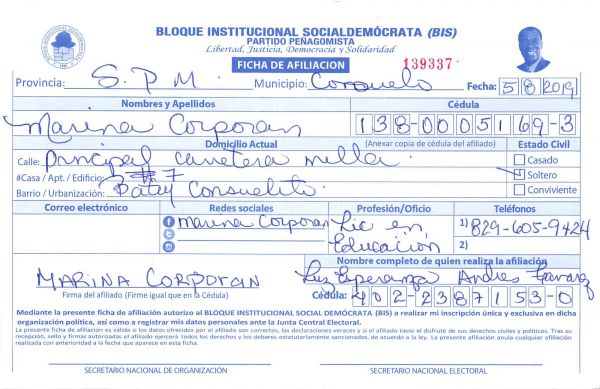 BLOQUE INSTITUCIONAL SOCIALDEMÓCRATA (BIS)
PARTIDO PEÑAGOMISTA
Libertad, Justicia, Democracia y Solidaridad
FICHA DE AFILIACION 139337
Provincia: S. P. M. Municipio: Consuelo Fecha: 5 8 2019
Nombres y Apellidos Cédula
Marina Corporan 138-0005169-3
Domicilio Actual (Anexar copia de cédula del afiliado) Estado Civil
Calle: Principal carretera mella Casado
#Casa / Apt. / Edificio: #7 Soltero
Barrio / Urbanización: Batey Consuelito Conviviente
Correo electrónico Redes sociales Profesión/Oficio Teléfonos
Marina Corporan Lic en 1) 829-605-9424
Educación 2)
Nombre completo de quien realiza la afiliación
MARINA CORPORAN Luz Esperanza Andres
Firma del afiliado (Firme igual que en la Cédula) Cédula: 402-2387153-0
Mediante la presente ficha de afiliación autorizo al BLOQUE INSTITUCIONAL SOCIAL DEMÓCRATA (BIS) a realizar mi inscripción única y exclusiva en dicha
organización política, así como a registrar mis datos personales ante la Junta Central Electoral.
La presente ficha de afiliación es válida si los datos ofrecidos por el afiliado son correctos, las declaraciones veraces y si el afiliado tiene el disfrute de sus derechos civiles y políticos. Tras su
recepción, sello y firmas autorizadas el afiliado ejercerá todos los derechos y los deberes estatutariamente sancionados, de acuerdo a la ley. La presente afiliación anula cualquier afiliación
realizada con anterioridad a la fecha que aparece en esta ficha.
SECRETARIO NACIONAL DE ORGANIZACIÓN SECRETARIO NACIONAL ELECTORAL